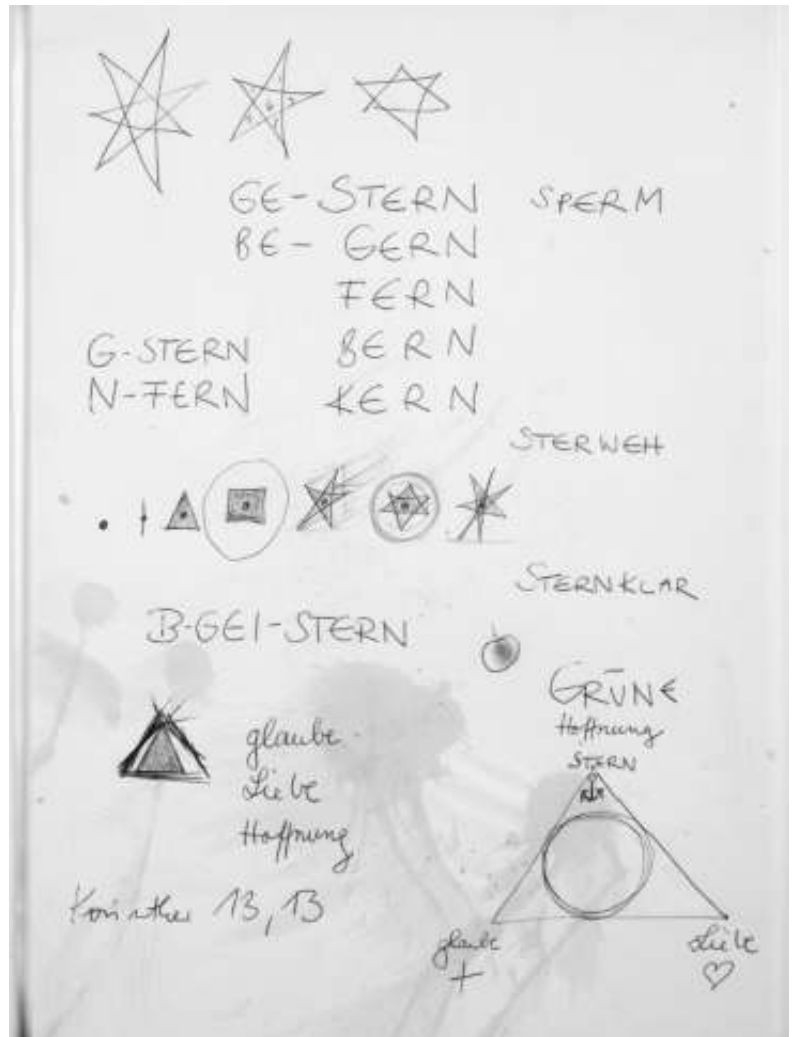 GE-STERN SPERM
BE- GERN
FERN
G-STERN BERN
N-FERN KERN
STERWEH
STERNKLAR
B-GEI-STERN
GRÜNE
Hoffnung
STERN
glaube
Liebe
Hoffnung
Korinther 13,13
glaube
Liebe